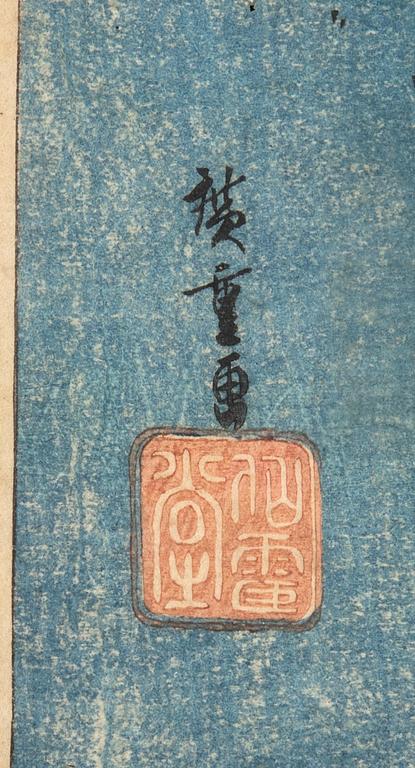 廣重画
仙鶴堂